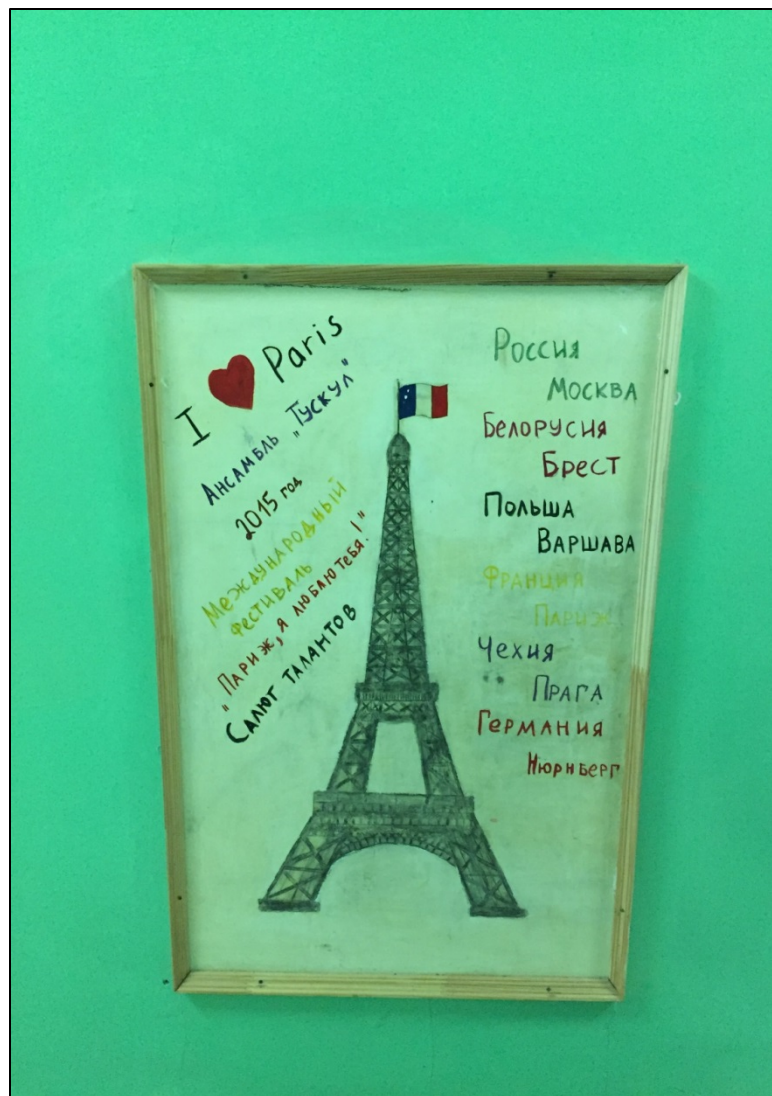 I ❤ Paris
Ансамбль „Тускул"
2015 год
Международный
фестиваль
„Париж, я люблю тебя!"
Салют талантов
Россия
Москва
Белорусия
Брест
Польша
Варшава
Франция
Париж
Чехия
Прага
Германия
Нюрнберг